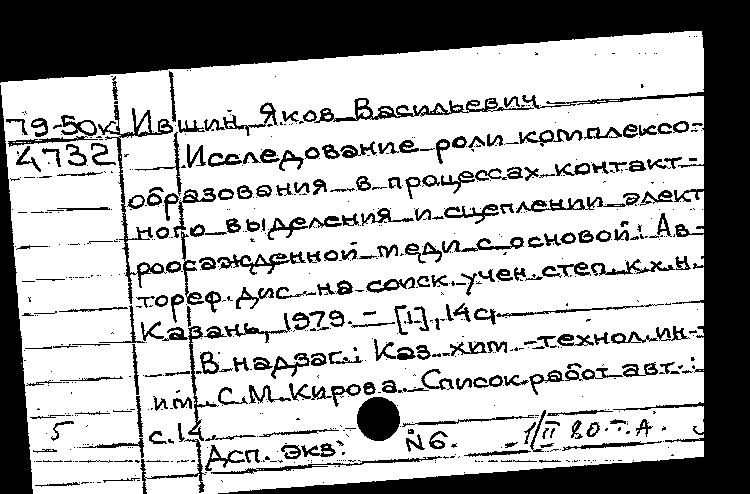 79-50к Ившин, Яков Васильевич
4732 Исследование роли комплексо-
образования в процессах контакт-
ного выделения и сцеплении элект
роосажденной меди с основой: Ав-
тореф. дис. на соиск. учен. степ. к.х.н.
Казань, 1979. – [1], 14с.
В надзаг.: Каз. хим.-технол. ин-т
им. С.М. Кирова. Список работ авт.:
5 с.14.
Дсп. Экз: N6. 1/II 80. Т.А.